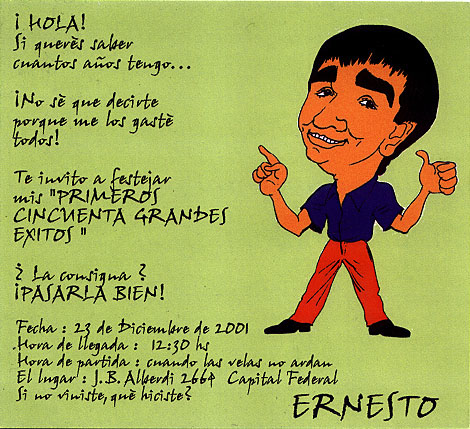 ¡ HOLA!
Si querès saber
cuantos años tengo...
¡No sè que decirte
porque me los gastè
todos!
Te invito a festejar
mis "PRIMEROS
CINCUENTA GRANDES
EXITOS "
¿ La consigna ?
¡PASARLA BIEN!
Fecha : 23 de Diciembre de 2001
Hora de llegada : 12:30 hs
Hora de partida : cuando las velas no ardan
El lugar : J.B. Alberdi 2664 Capital Federal
Si no viniste, què hiciste?
ERNESTO